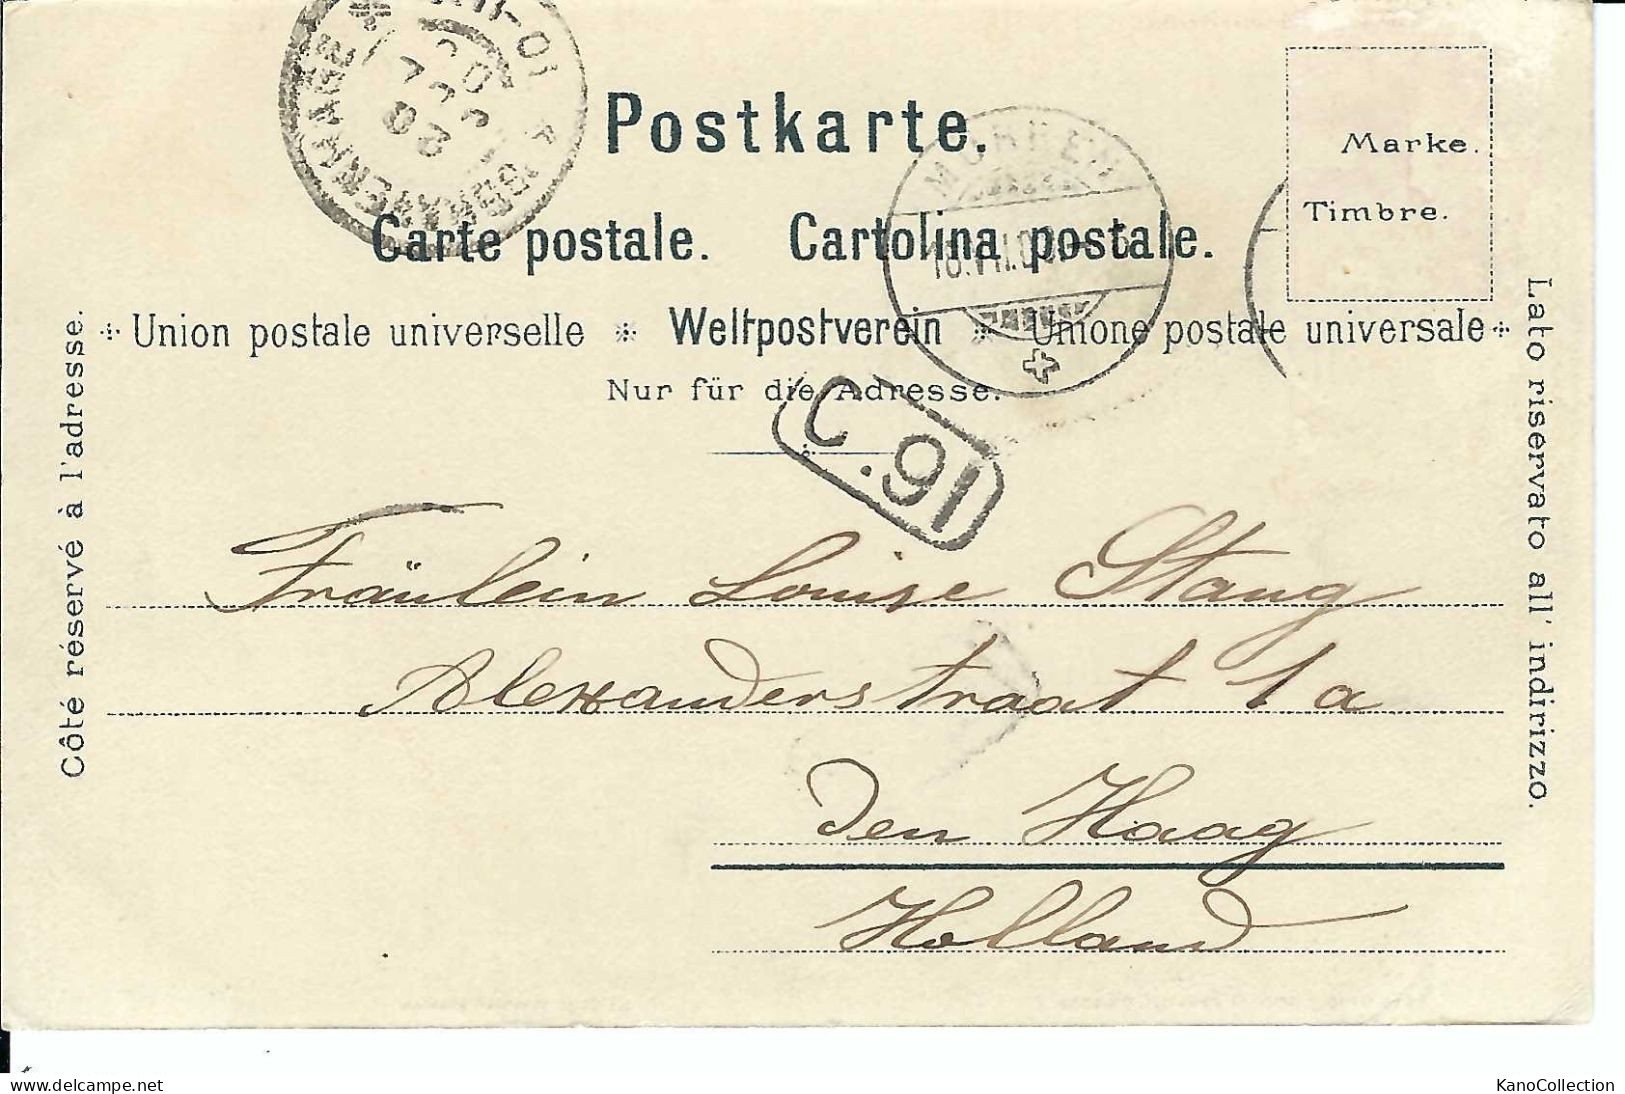 Postkarte.
Marke.
Timbre.
Carte postale. Cartolina postale.
Union postale universelle * Weltpostverein * Unione postale universale
Nur für die Adresse.
Côté réservé à l'adresse.
Lato riservato all' indirizzo.
MÜRREN
C.91
'SGRAVENHAGE
Fräulein Louise Stang
Alexanderstraat 1a
Den Haag
Holland
KanoCollection
www.delcampe.net